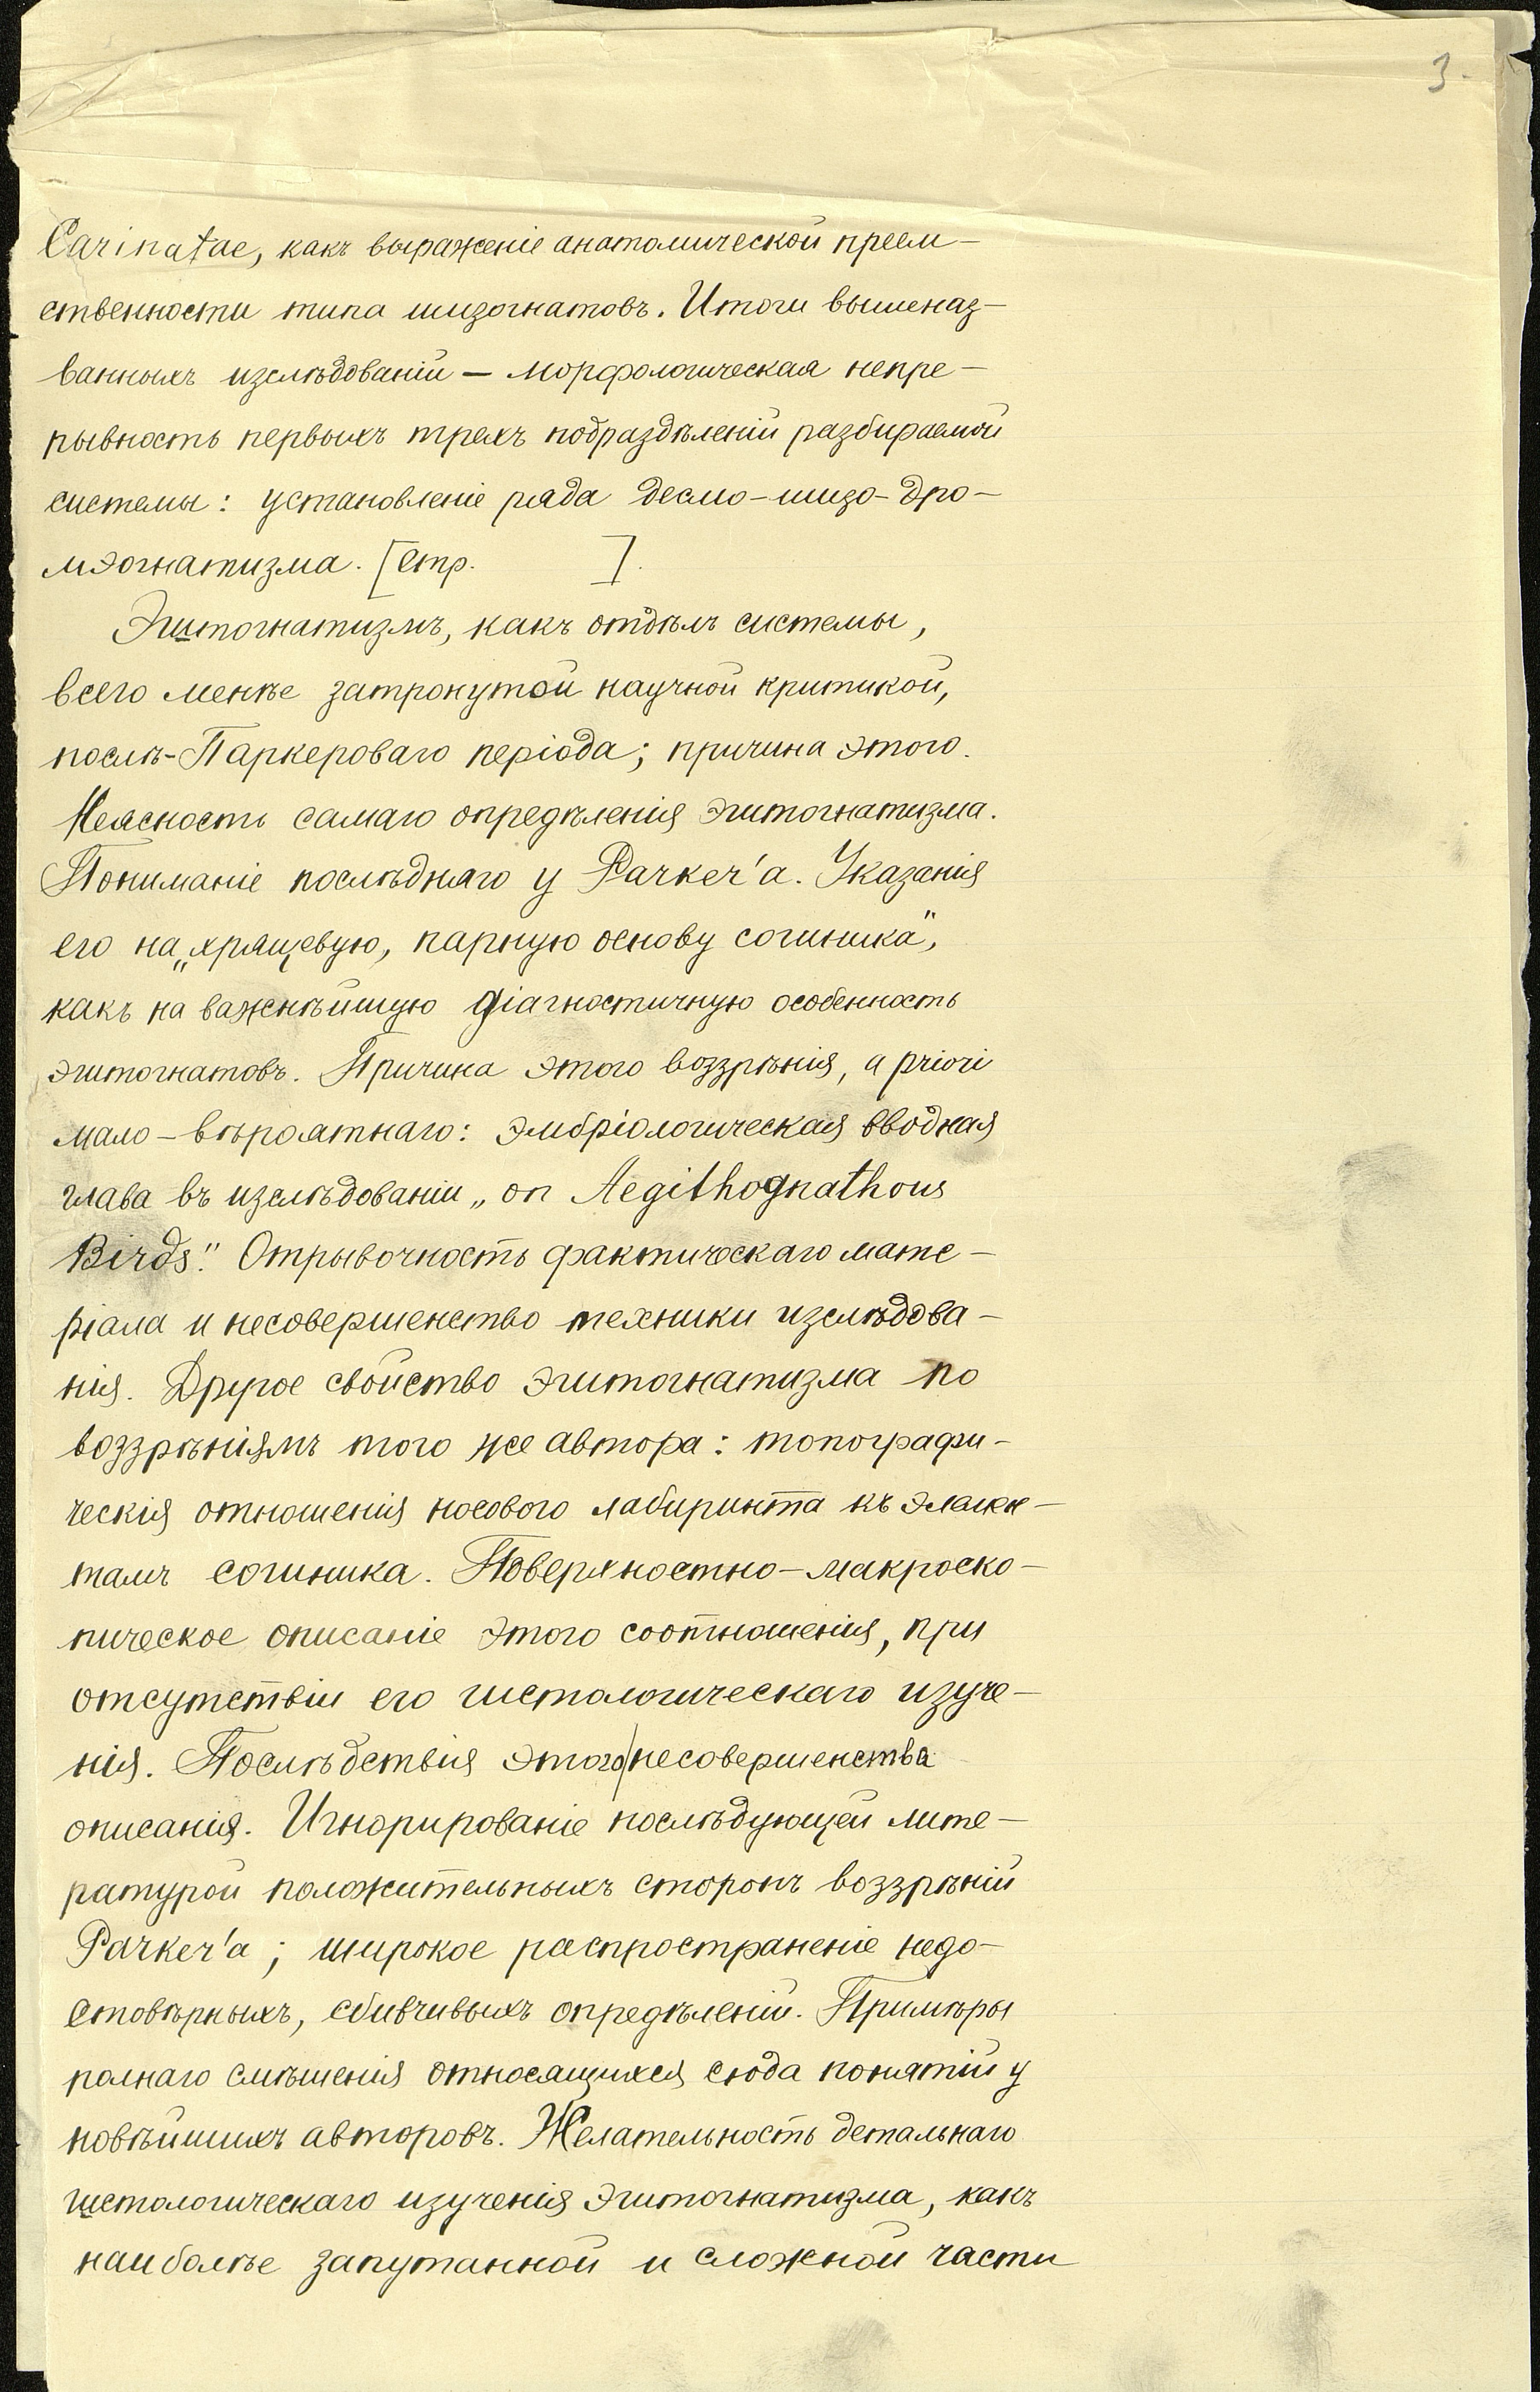 3.
Carinatae, какъ выраженіе анатомической преем-
ственности типа шизогнатовъ. Итоги вышеназ-
ванныхъ изслѣдованій – морфологическая непре-
рывность первыхъ трехъ подраздѣленій разбираемой
системы: установленіе ряда десмо-шизо-дро-
мэогнатизма. [Стр. ].
Эгитогнатизмъ, какъ отдѣлъ системы,
всего менѣе затронутой научной критикой,
послѣ-Паркероваго періода; причина этого.
Неясность самаго опредѣленія эгитогнатизма.
Пониманіе послѣдняго у Parker'a. Указанія
его на „хрящевую, парную основу сошника",
какъ на важнѣйшую діагностичную особенность
эгитогнатовъ. Причина этого воззрѣнія, a priori
мало-вѣроятнаго: эмбріологическая вводная
глава въ изслѣдованіи „on Aegithognathous
Birds". Отрывочность фактическаго мате-
ріала и несовершенство техники изслѣдова-
нія. Другое свойство эгитогнатизма по
воззрѣніямъ того же автора: топографи-
ческія отношенія носового лабиринта къ элемен-
тамъ сошника. Поверхностно-макроско-
пическое описаніе этого соотношенія, при
отсутствіи его гистологическаго изуче-
нія. Послѣдствія этого несовершенства
описанія. Игнорированіе послѣдующей лите-
ратурой положительныхъ сторонъ воззрѣній
Parker'a; широкое распространеніе недо-
стовѣрныхъ, сбивчивыхъ опредѣленій. Примѣры
полнаго смѣшенія относящихся сюда понятій у
новѣйшихъ авторовъ. Желательность детальнаго
гистологическаго изученія эгитогнатизма, какъ
наиболѣе запутанной и сложной части